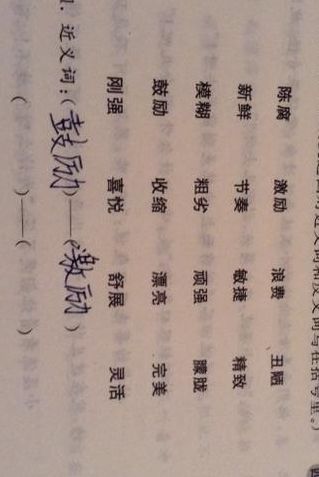 近义词和反义词写在括号里。)
陈腐 激励 浪费 丑陋
新鲜 节奏 敏捷 精致
模糊 粗劣 顽强 朦胧
鼓励 收缩 漂亮 完美
刚强 喜悦 舒展 灵活
1. 近义词:(鼓励)——(激励)
( )——( )